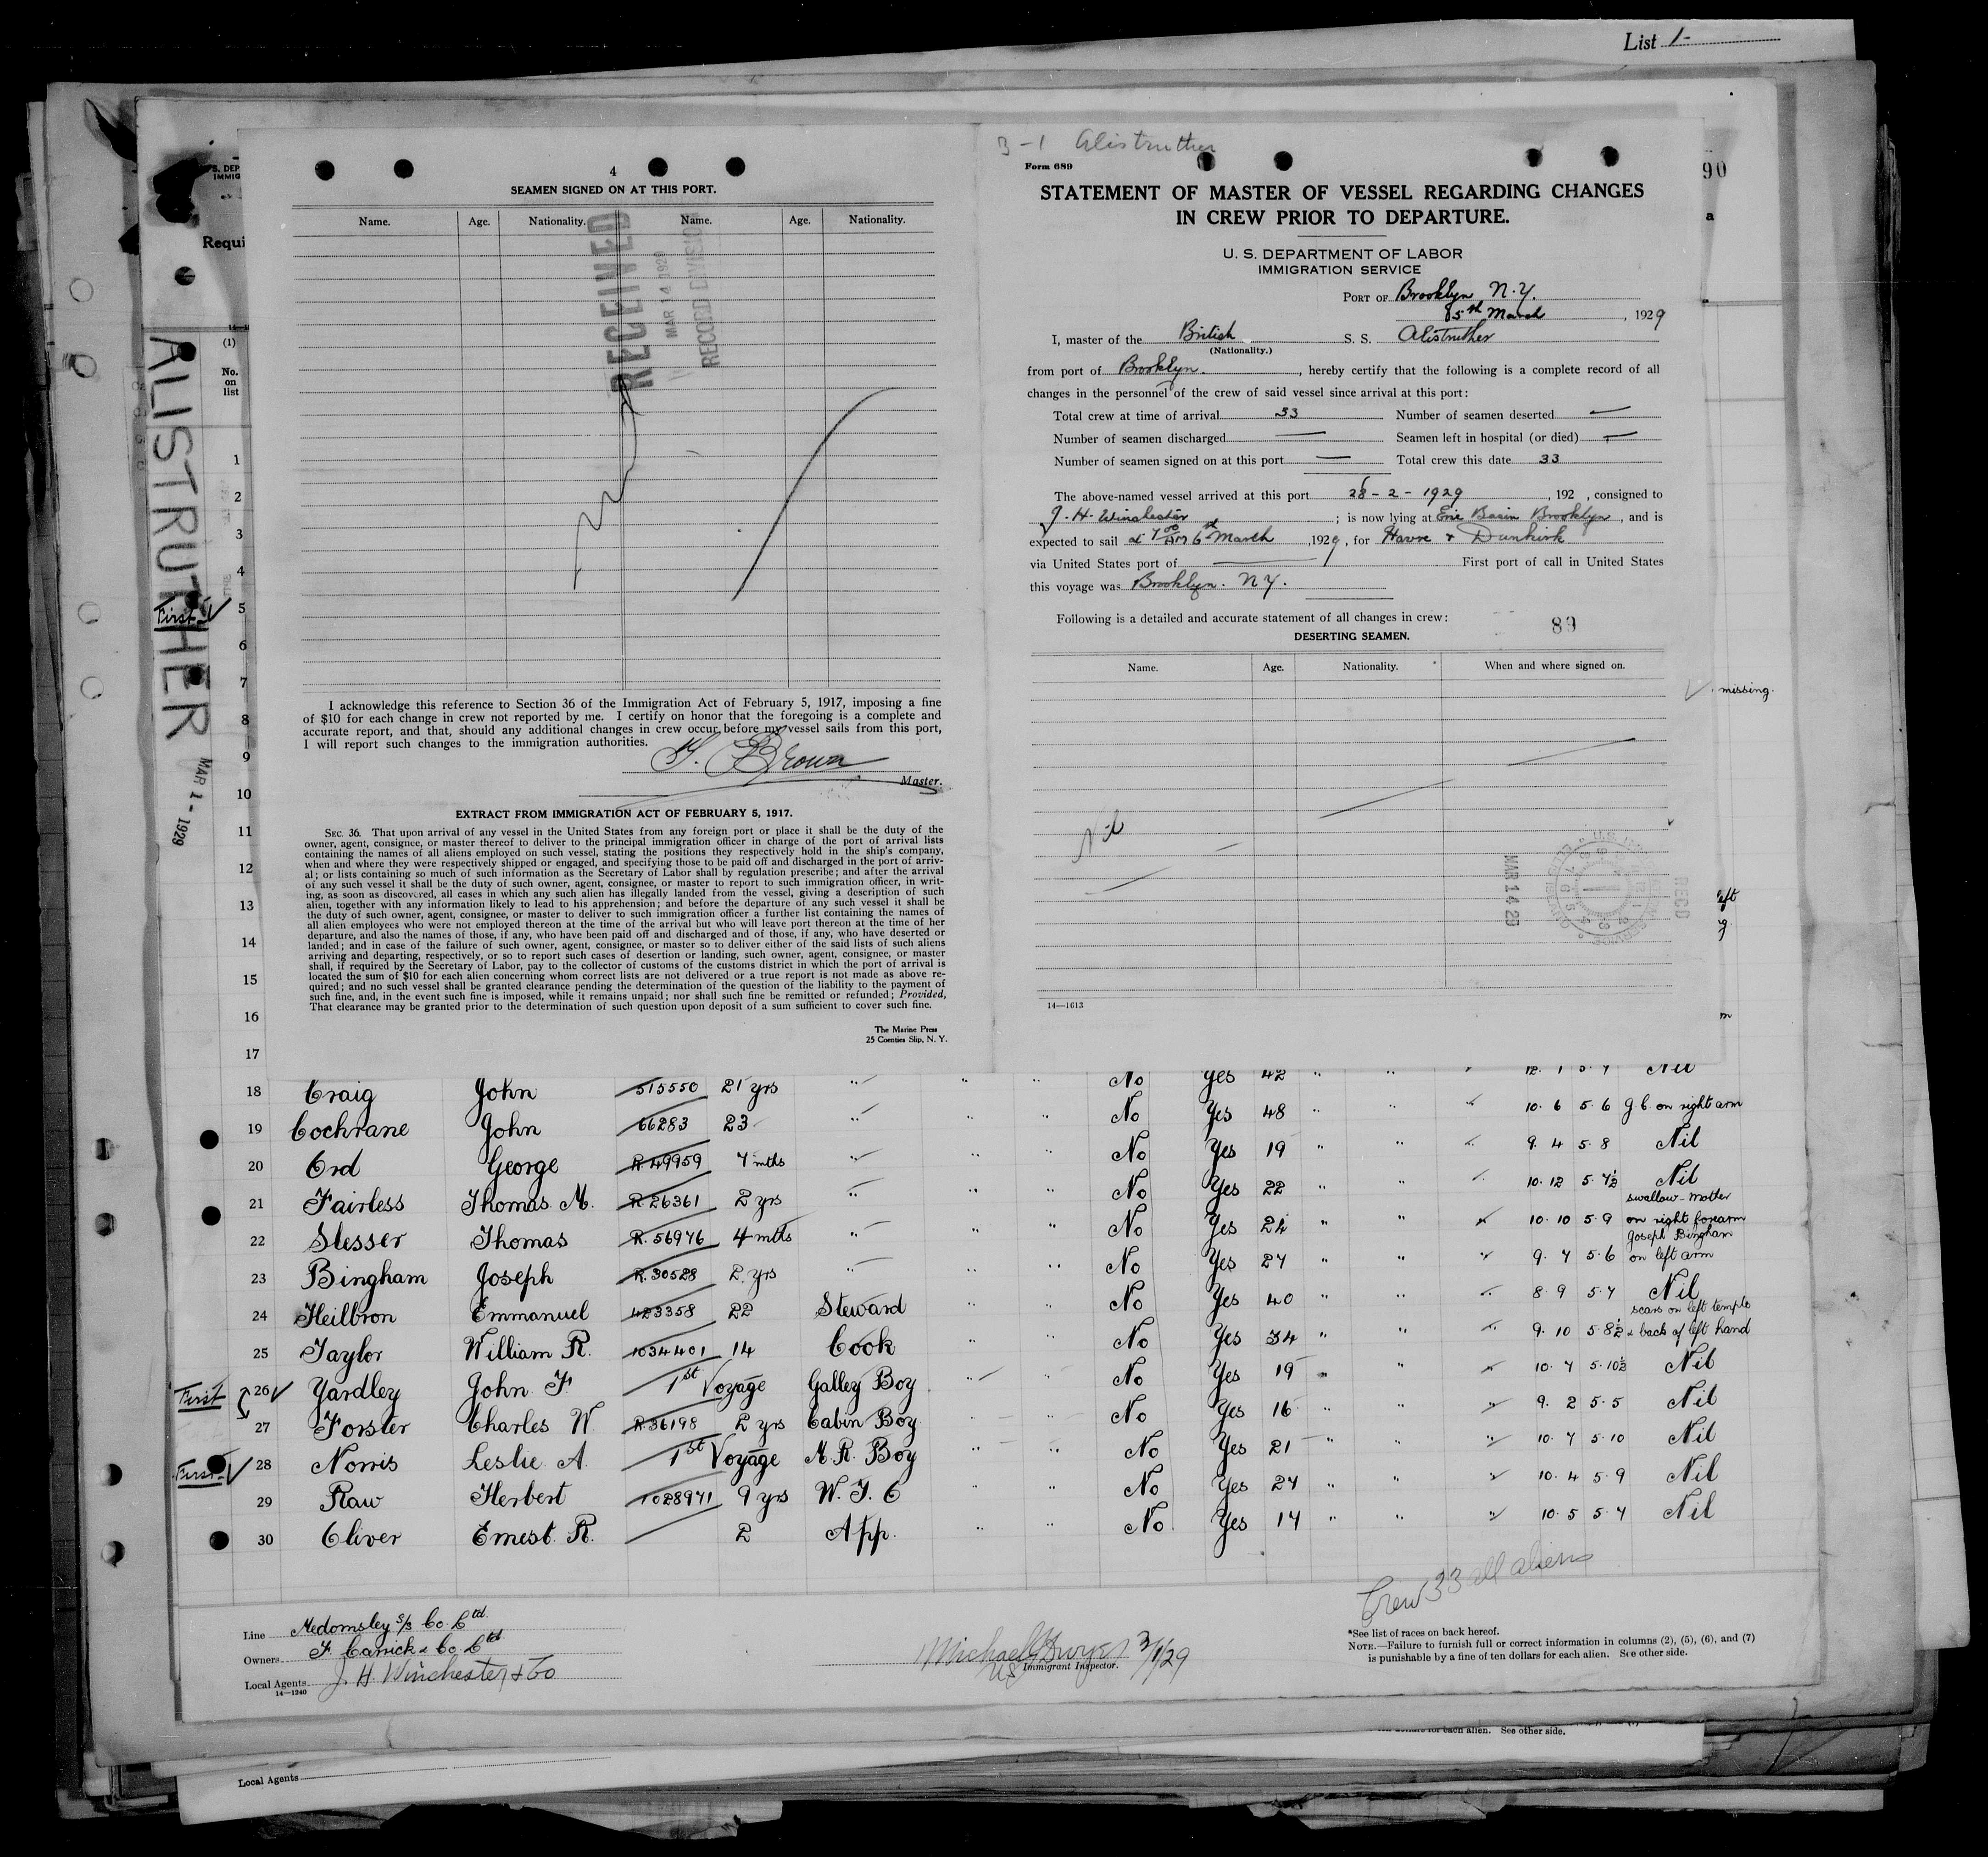 List 1-
3-1 Alistruther
4
SEAMEN SIGNED ON AT THIS PORT.
Name. Age. Nationality. Name. Age. Nationality.
RECEIVED
MAR 14 1929
RECORD DIVISION
I acknowledge this reference to Section 36 of the Immigration Act of February 5, 1917, imposing a fine
of $10 for each change in crew not reported by me. I certify on honor that the foregoing is a complete and
accurate report, and that, should any additional changes in crew occur before my vessel sails from this port,
I will report such changes to the immigration authorities.
T. Brown
Master.
EXTRACT FROM IMMIGRATION ACT OF FEBRUARY 5, 1917.
SEC. 36. That upon arrival of any vessel in the United States from any foreign port or place it shall be the duty of the
owner, agent, consignee, or master thereof to deliver to the principal immigration officer in charge of the port of arrival lists
containing the names of all aliens employed on such vessel, stating the positions they respectively hold in the ship's company,
when and where they were respectively shipped or engaged, and specifying those to be paid off and discharged in the port of arriv-
al; or lists containing so much of such information as the Secretary of Labor shall by regulation prescribe; and after the arrival
of any such vessel it shall be the duty of such owner, agent, consignee, or master to report to such immigration officer, in writ-
ing, as soon as discovered, all cases in which any such alien has illegally landed from the vessel, giving a description of such
alien, together with any information likely to lead to his apprehension; and before the departure of any such vessel it shall be
the duty of such owner, agent, consignee, or master to deliver to such immigration officer a further list containing the names of
all alien employees who were not employed thereon at the time of the arrival but who will leave port thereon at the time of her
departure, and also the names of those, if any, who have been paid off and discharged and of those, if any, who have deserted or
landed; and in case of the failure of such owner, agent, consignee, or master so to deliver either of the said lists of such aliens
arriving and departing, respectively, or so to report such cases of desertion or landing, such owner, agent, consignee, or master
shall, if required by the Secretary of Labor, pay to the collector of customs of the customs district in which the port of arrival is
located the sum of $10 for each alien concerning whom correct lists are not delivered or a true report is not made as above re-
quired; and no such vessel shall be granted clearance pending the determination of the question of the liability to the payment of
such fine, and, in the event such fine is imposed, while it remains unpaid; nor shall such fine be remitted or refunded; Provided,
That clearance may be granted prior to the determination of such question upon deposit of a sum sufficient to cover such fine.
The Marine Press
25 Coenties Slip, N. Y.
Form 689
STATEMENT OF MASTER OF VESSEL REGARDING CHANGES
IN CREW PRIOR TO DEPARTURE.
U. S. DEPARTMENT OF LABOR
IMMIGRATION SERVICE
PORT OF Brooklyn N.Y.
5th March, 1929
I, master of the British S. S. Alistruther
(Nationality.)
from port of Brooklyn., hereby certify that the following is a complete record of all
changes in the personnel of the crew of said vessel since arrival at this port:
Total crew at time of arrival 33 Number of seamen deserted —
Number of seamen discharged — Seamen left in hospital (or died) —
Number of seamen signed on at this port — Total crew this date 33
The above-named vessel arrived at this port 28-2-1929, 192 , consigned to
J. H. Winchester; is now lying at Erie Basin Brooklyn, and is
expected to sail at 7 00 AM 6 March, 1929, for Havre & Dunkirk
via United States port of — First port of call in United States
this voyage was Brooklyn. N.Y.
Following is a detailed and accurate statement of all changes in crew:
89
DESERTING SEAMEN.
Name. Age. Nationality. When and where signed on.
Nil
MAR 14 29
RECD
14—1613
90
a
missing.
S. DEP
IMMIG
Requi
(1)
No.
on
list
ALISTRUTHER
MAR 1 - 1929
1
2
3
4
First 5
6
7
8
9
10
11
12
13
14
15
16
17
18 Craig John 515550 21 yrs " " " No Yes 42 " " " 12. 1 5. 7 Nil
19 Cochrane John 66283 23 " " " No Yes 48 " " " 10. 6 5. 6 J.C. on right arm
20 Ord George R.49959 7 mths " " " No Yes 19 " " " 9. 4 5. 8 Nil
21 Fairless Thomas M. R 26361 2 yrs " " " No Yes 22 " " " 10. 12 5. 7½ Nil
22 Slesser Thomas R. 56976 4 mths " " " No Yes 24 " " " 10. 10 5. 9 swallow - mother on right forearm
23 Bingham Joseph R. 30528 2 yrs " " " No Yes 27 " " " 9. 7 5. 6 Joseph Bingham on left arm
24 Heilbron Emmanuel 423358 22 Steward " " No Yes 40 " " " 8. 9 5. 7 Nil
25 Taylor William R. 1034401 14 Cook " " No Yes 34 " " " 9. 10 5. 8½ scars on left temple & back of left hand
First 26 Yardley John F. 1st Voyage Galley Boy " " No Yes 19 " " " 10. 7 5. 10½ Nil
27 Forster Charles W. R 36198 2 yrs Cabin Boy " " No Yes 16 " " " 9. 2 5. 5 Nil
First 28 Norris Leslie A. 1st Voyage M.R. Boy " " No Yes 21 " " " 10. 7 5. 10 Nil
29 Raw Herbert 1028971 9 yrs W. T. O " " No Yes 27 " " " 10. 4 5. 9 Nil
30 Oliver Ernest R. 2 App. " " No Yes 17 " " " 10. 5 5. 7 Nil
Crew 33 all aliens
Line Medomsley S/S Co Ltd.
Owners F. Carrick & Co Ltd
Local Agents J. H. Winchester & Co
14—1240
Michael Dwyer 3/1/29
US Immigrant Inspector.
*See list of races on back hereof.
NOTE.—Failure to furnish full or correct information in columns (2), (5), (6), and (7)
is punishable by a fine of ten dollars for each alien. See other side.
for each alien. See other side.
Local Agents